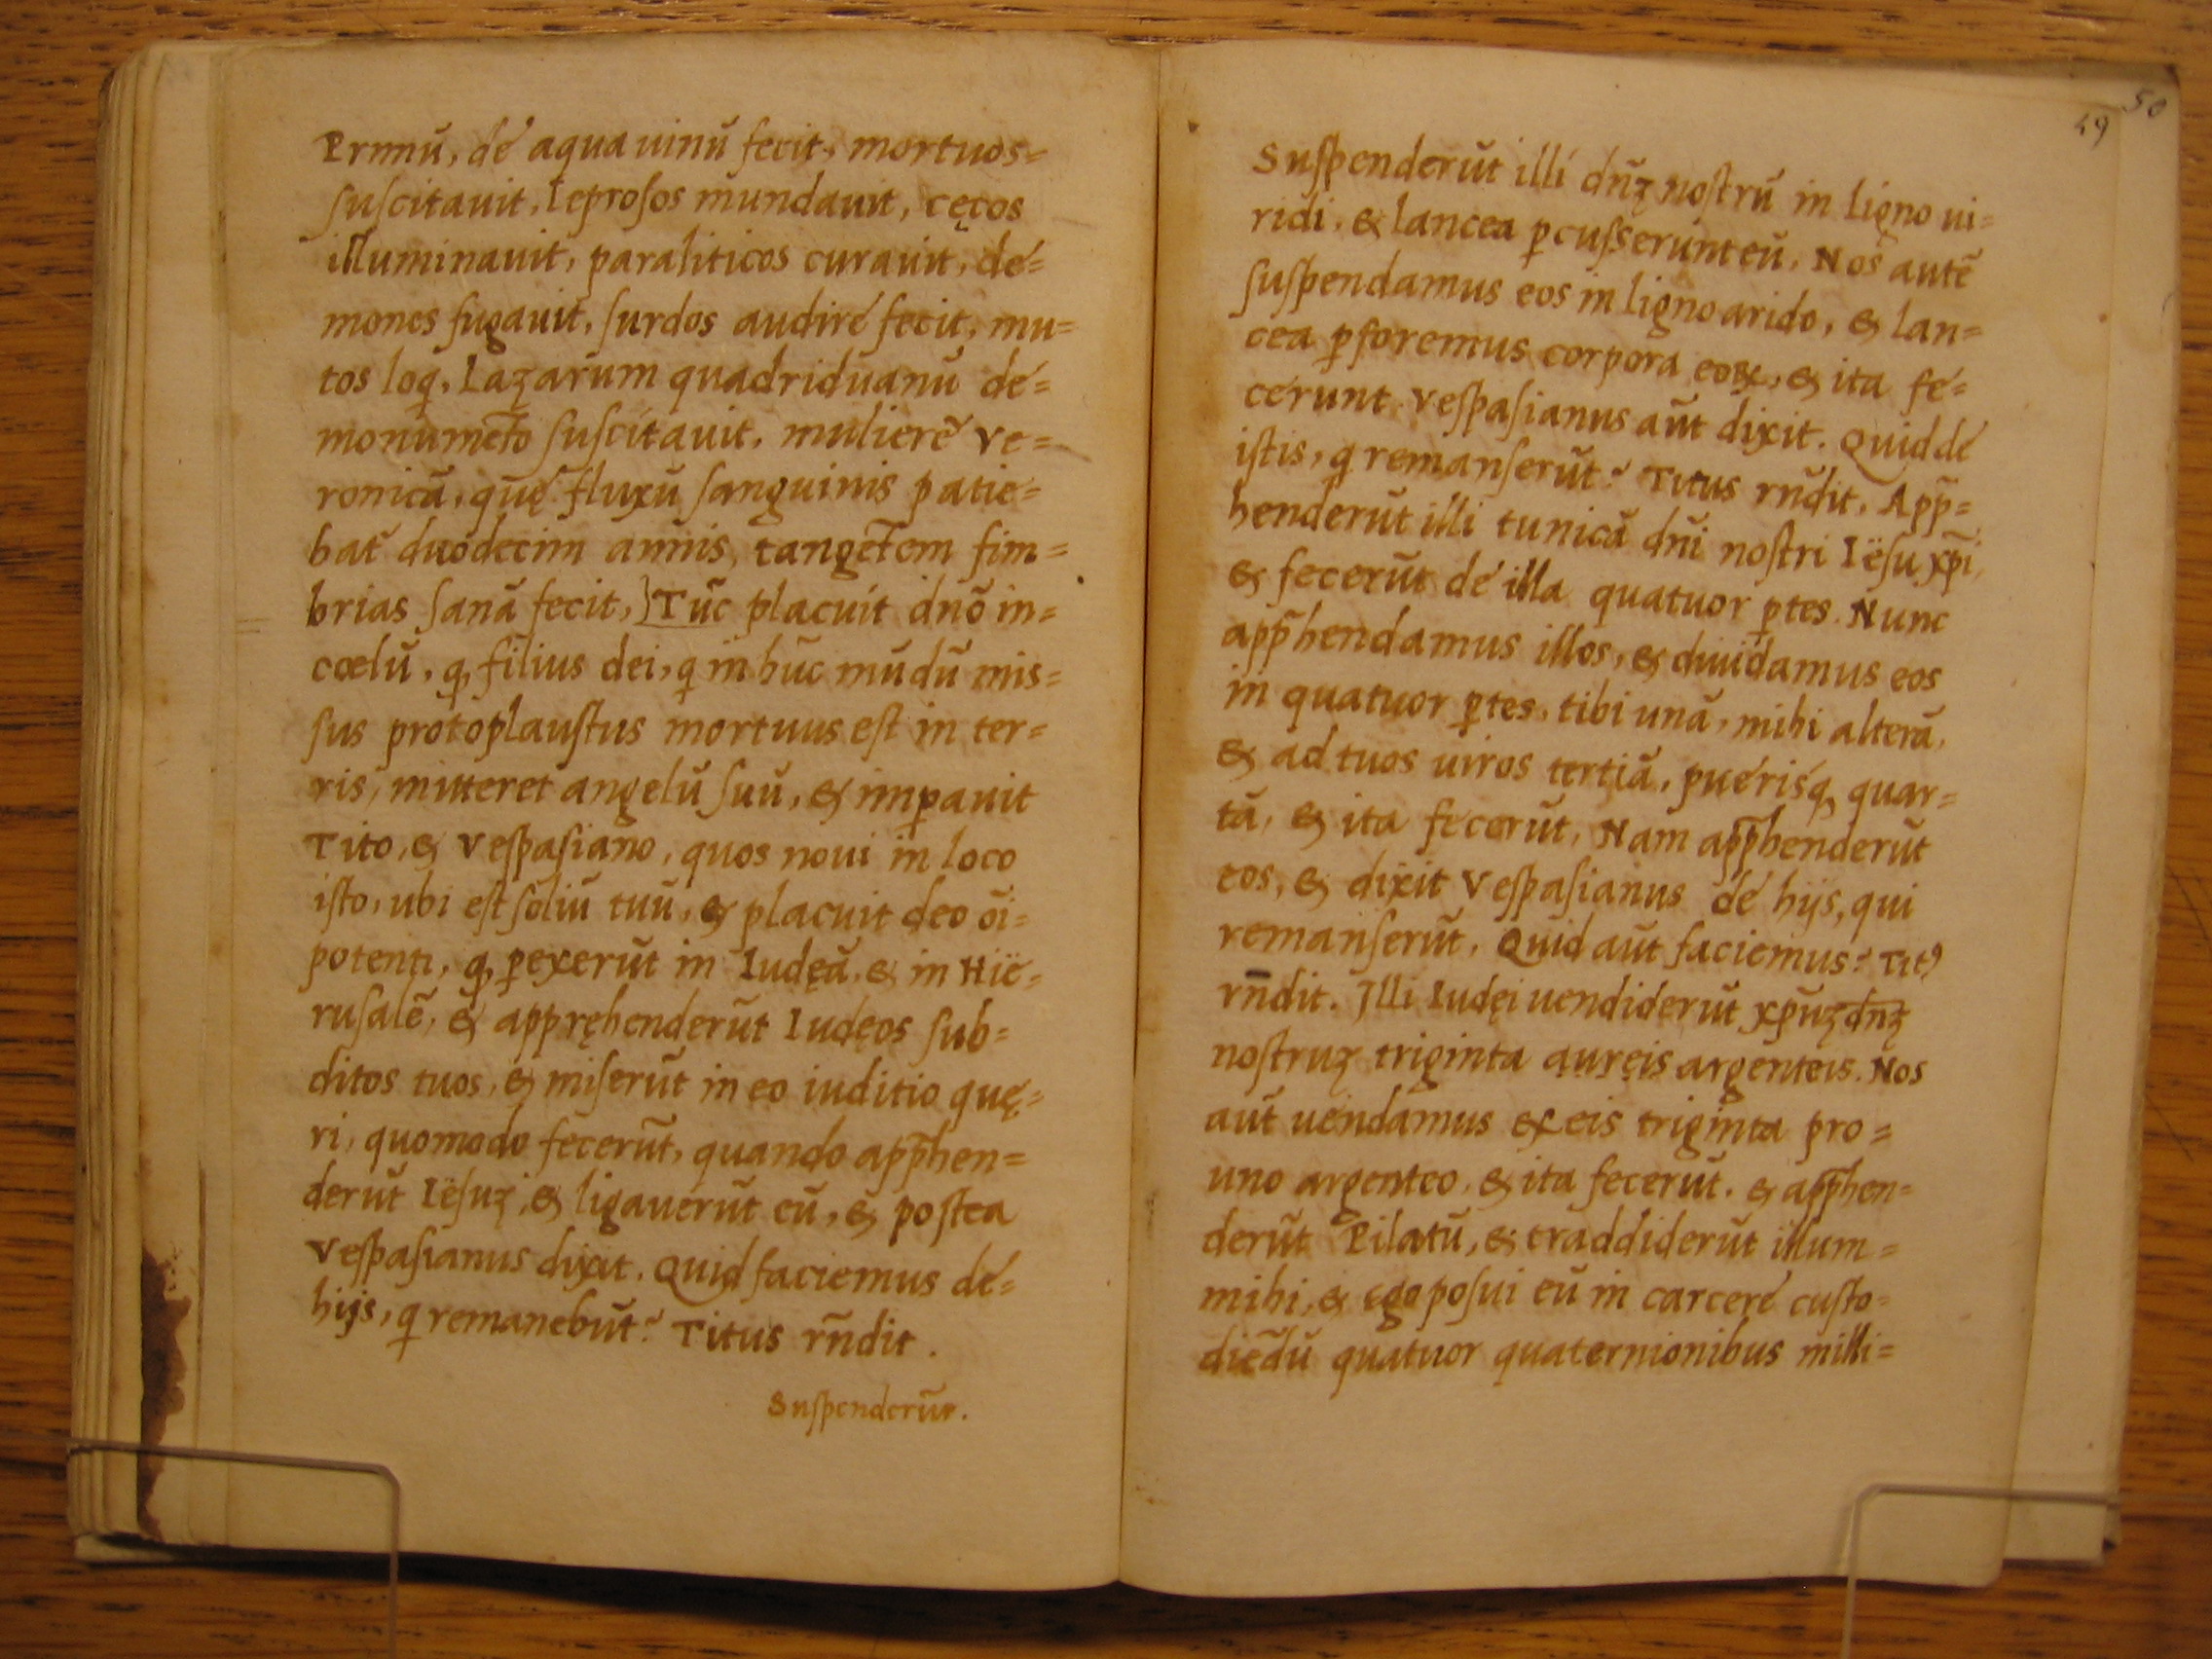 Primū, de aqua uinū fecit, mortuos=
suscitauit, leprosos mundauit, cęcos
illuminauit, paraliticos curauit, de=
mones fugauit, surdos audire fecit, mu=
tos loq, Lazarum quadriduanū de=
monumēto suscitauit, mulierē Ve=
ronicā, quę fluxū sanguinis patie=
bat̄ duodecim annis, tangētem fim=
brias sanā fecit, Tūc placuit dnō in=
cœlū, ꝙ filius dei, q in hūc mūdū mis=
sus protoplaustus mortuus est in ter=
ris, mitteret angelū suū, & imꝑauit
Tito, & Vespasiano, quos noui in loco
isto, ubi est soliū tuū, & placuit deo oī=
potenti, ꝙ ꝑexerūt in Iudęā, & in Hië=
rusalē, & apprehenderūt Iudęos sub=
ditos tuos, & miserūt in eo iuditio quę=
ri, quomodo fecerūt, quando app̄hen=
derūt Iësuȝ, & ligauerūt eū, & postea
Vespasianus dixit. Quid faciemus de=
hijs, q remanebūt? Titus rn̄dit.
Suspenderūt.
49 50
Suspenderūt illi dn̄ȝ nostrū in ligno ui=
ridi, & lancea ꝑcusserunt eū, Nos autē
suspendamus eos in ligno arido, & lan=
cea ꝑforemus corpora eoꝝ, & ita fe=
cerunt. Vespasianus aūt dixit. Quid de
istis, q remanserūt? Titus rn̄dit. App̄=
henderūt illi tunicā dn̄i nostri Iësu xp̄i,
& fecerūt de illa quatuor ꝑtes. Nunc
app̄hendamus illos, & diuidamus eos
in quatuor ꝑtes, tibi unā, mihi alterā,
& ad tuos uiros tertiā, puerisq, quar=
tā, & ita fecerūt, Nam app̄henderūt
eos, & dixit Vespasianus de hijs, qui
remanserūt, Quid aūt faciemus? Titꝰ
rn̄dit. Illi Iudęi uendiderūt xp̄uȝ dn̄ȝ
nostruȝ triginta aureis argenteis. Nos
aūt uendamus ex eis triginta pro=
uno argenteo, & ita fecerūt. & app̄hen=
derūt Pilatū, & traddiderūt illum=
mihi, & ego posui eū in carcere custo=
diēdū quatuor quaternionibus milli=